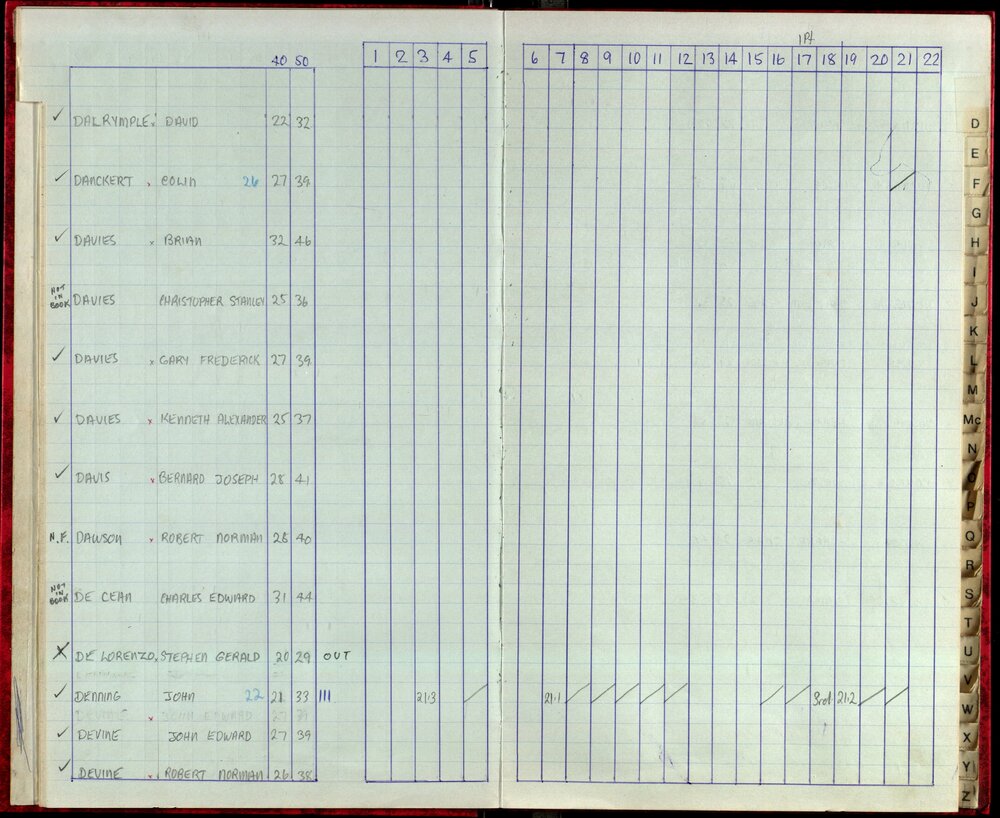 1Pt
40 50 1 2 3 4 5 6 7 8 9 10 11 12 13 14 15 16 17 18 19 20 21 22
✓ DALRYMPLE x DAVID 22 32
✓ DANCKERT x COLIN 26 27 39
✓ DAVIES x BRIAN 32 46
NOT IN BOOK DAVIES CHRISTOPHER STANLEY 25 36
✓ DAVIES x GARY FREDERICK 27 39
✓ DAVIES x KENNETH ALEXANDER 25 37
✓ DAVIS x BERNARD JOSEPH 28 41
N.F. DAWSON x ROBERT NORMAN 28 40
NOT IN BOOK DE CEAN CHARLES EDWARD 31 44
X DE LORENZO x STEPHEN GERALD 20 29 OUT
✓ DENNING JOHN 22 21 33 III 21.3 / 21.1 / / / / / / / 3rd 21.2 / /
DEVINE x JOHN EDWARD 27 39
✓ DEVINE JOHN EDWARD 27 39
✓ DEVINE x ROBERT NORMAN 26 38
D
E
F
G
H
I
J
K
L
M
Mc
N
O
P
Q
R
S
T
U
V
W
X
Y
Z